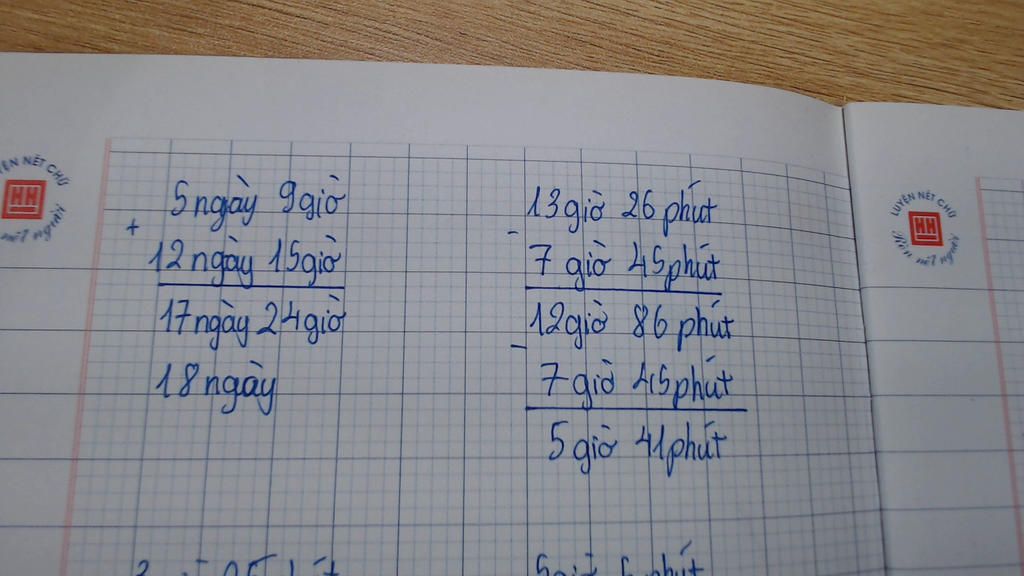 5 ngày 9 giờ
+
12 ngày 15 giờ
17 ngày 24 giờ
18 ngày
13 giờ 26 phút
-
7 giờ 45 phút
12 giờ 86 phút
-
7 giờ 45 phút
5 giờ 41 phút
LUYỆN NÉT CHỮ
HH
Rèn nết người
NÉT CHỮ
HH
nết người